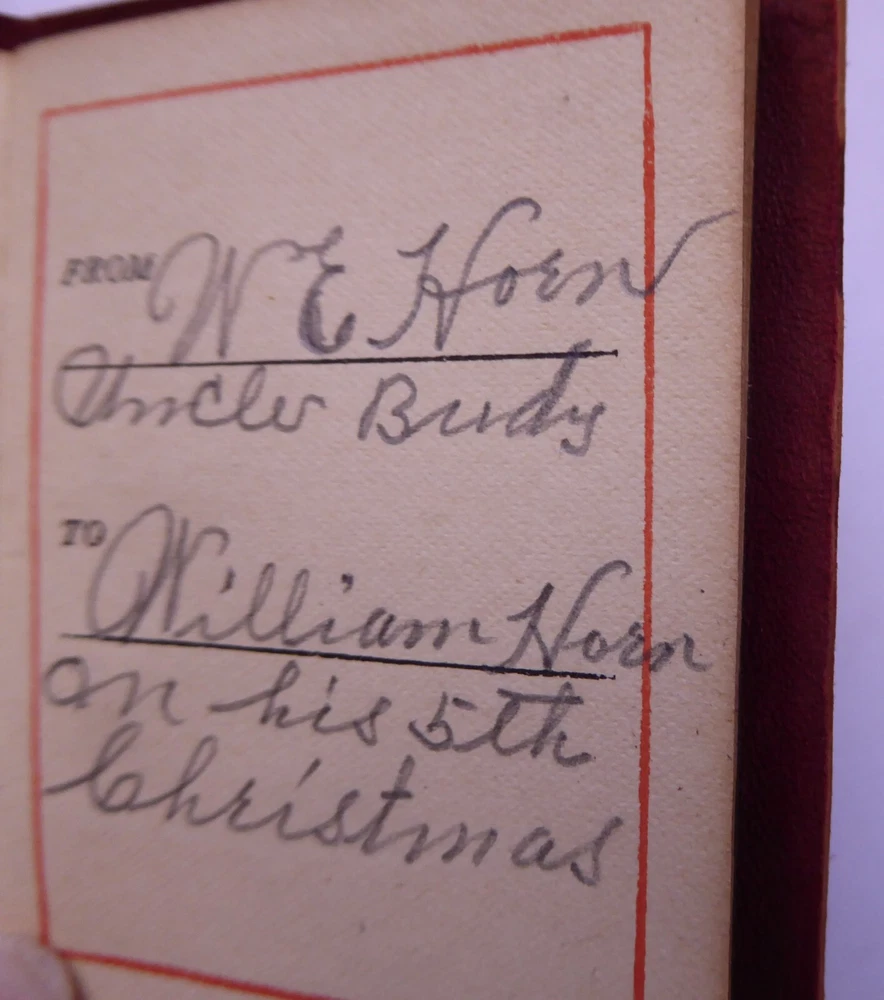 FROM W E Horn
Uncle Budy
TO William Horn
on his 5th
Christmas